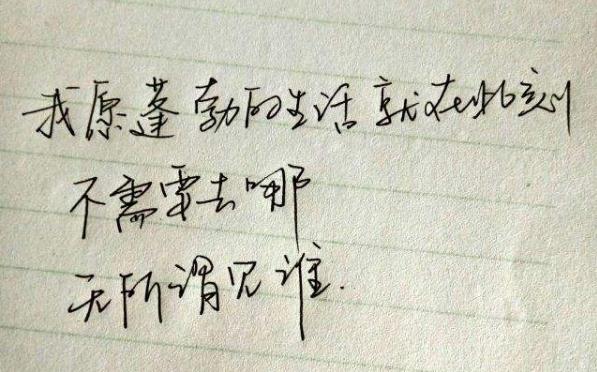 我愿蓬勃的生活就在此刻
不需要去哪
无所谓见谁.